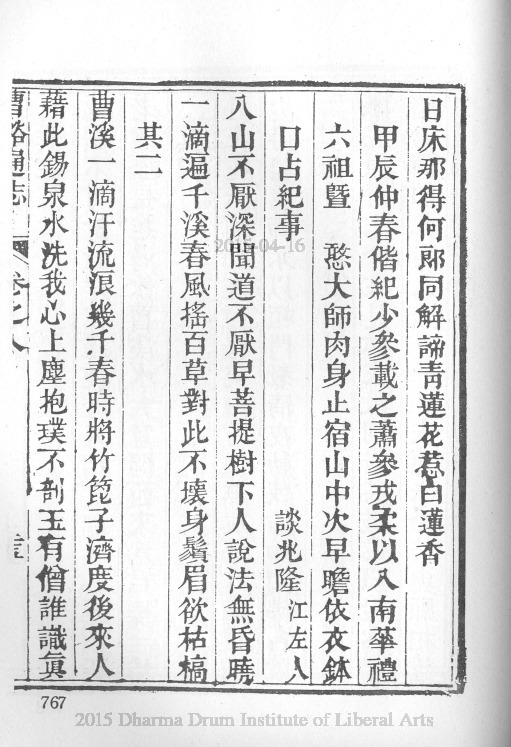 日床那得何郎同解諦青蓮花惹白蓮香
甲辰仲春偕紀少參載之蕭參戎柔以入南華禮
六祖暨 憨大師肉身止宿山中次早瞻依衣鉢
口占紀事 談兆隆 江左人
入山不厭深聞道不厭早菩提樹下人說法無昏曉
一滴遍千溪春風搖百草對此不壞身鬚眉欲枯槁
其二
曹溪一滴汗流浪幾千春時將竹箆子濟度後來人
藉此錫泉水洗我心上塵抱璞不剖玉有僧誰識眞
曹谿通志 卷之八
2015-04-16
767
2015 Dharma Drum Institute of Liberal Arts